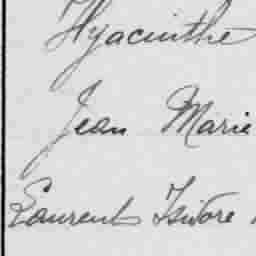 Hyacinthe
Jean Marie
Laurent Isidore